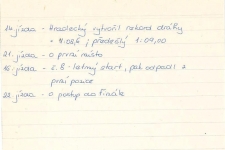 14. jízda - Hradecký vytvořil rekord dráhy
= 1:08,6 / předešlý 1:09,00
21. jízda - o první místo
15. jízda - č. 8 - letmý start, pak odpadl z
první pozice
22. jízda - o postup do finále